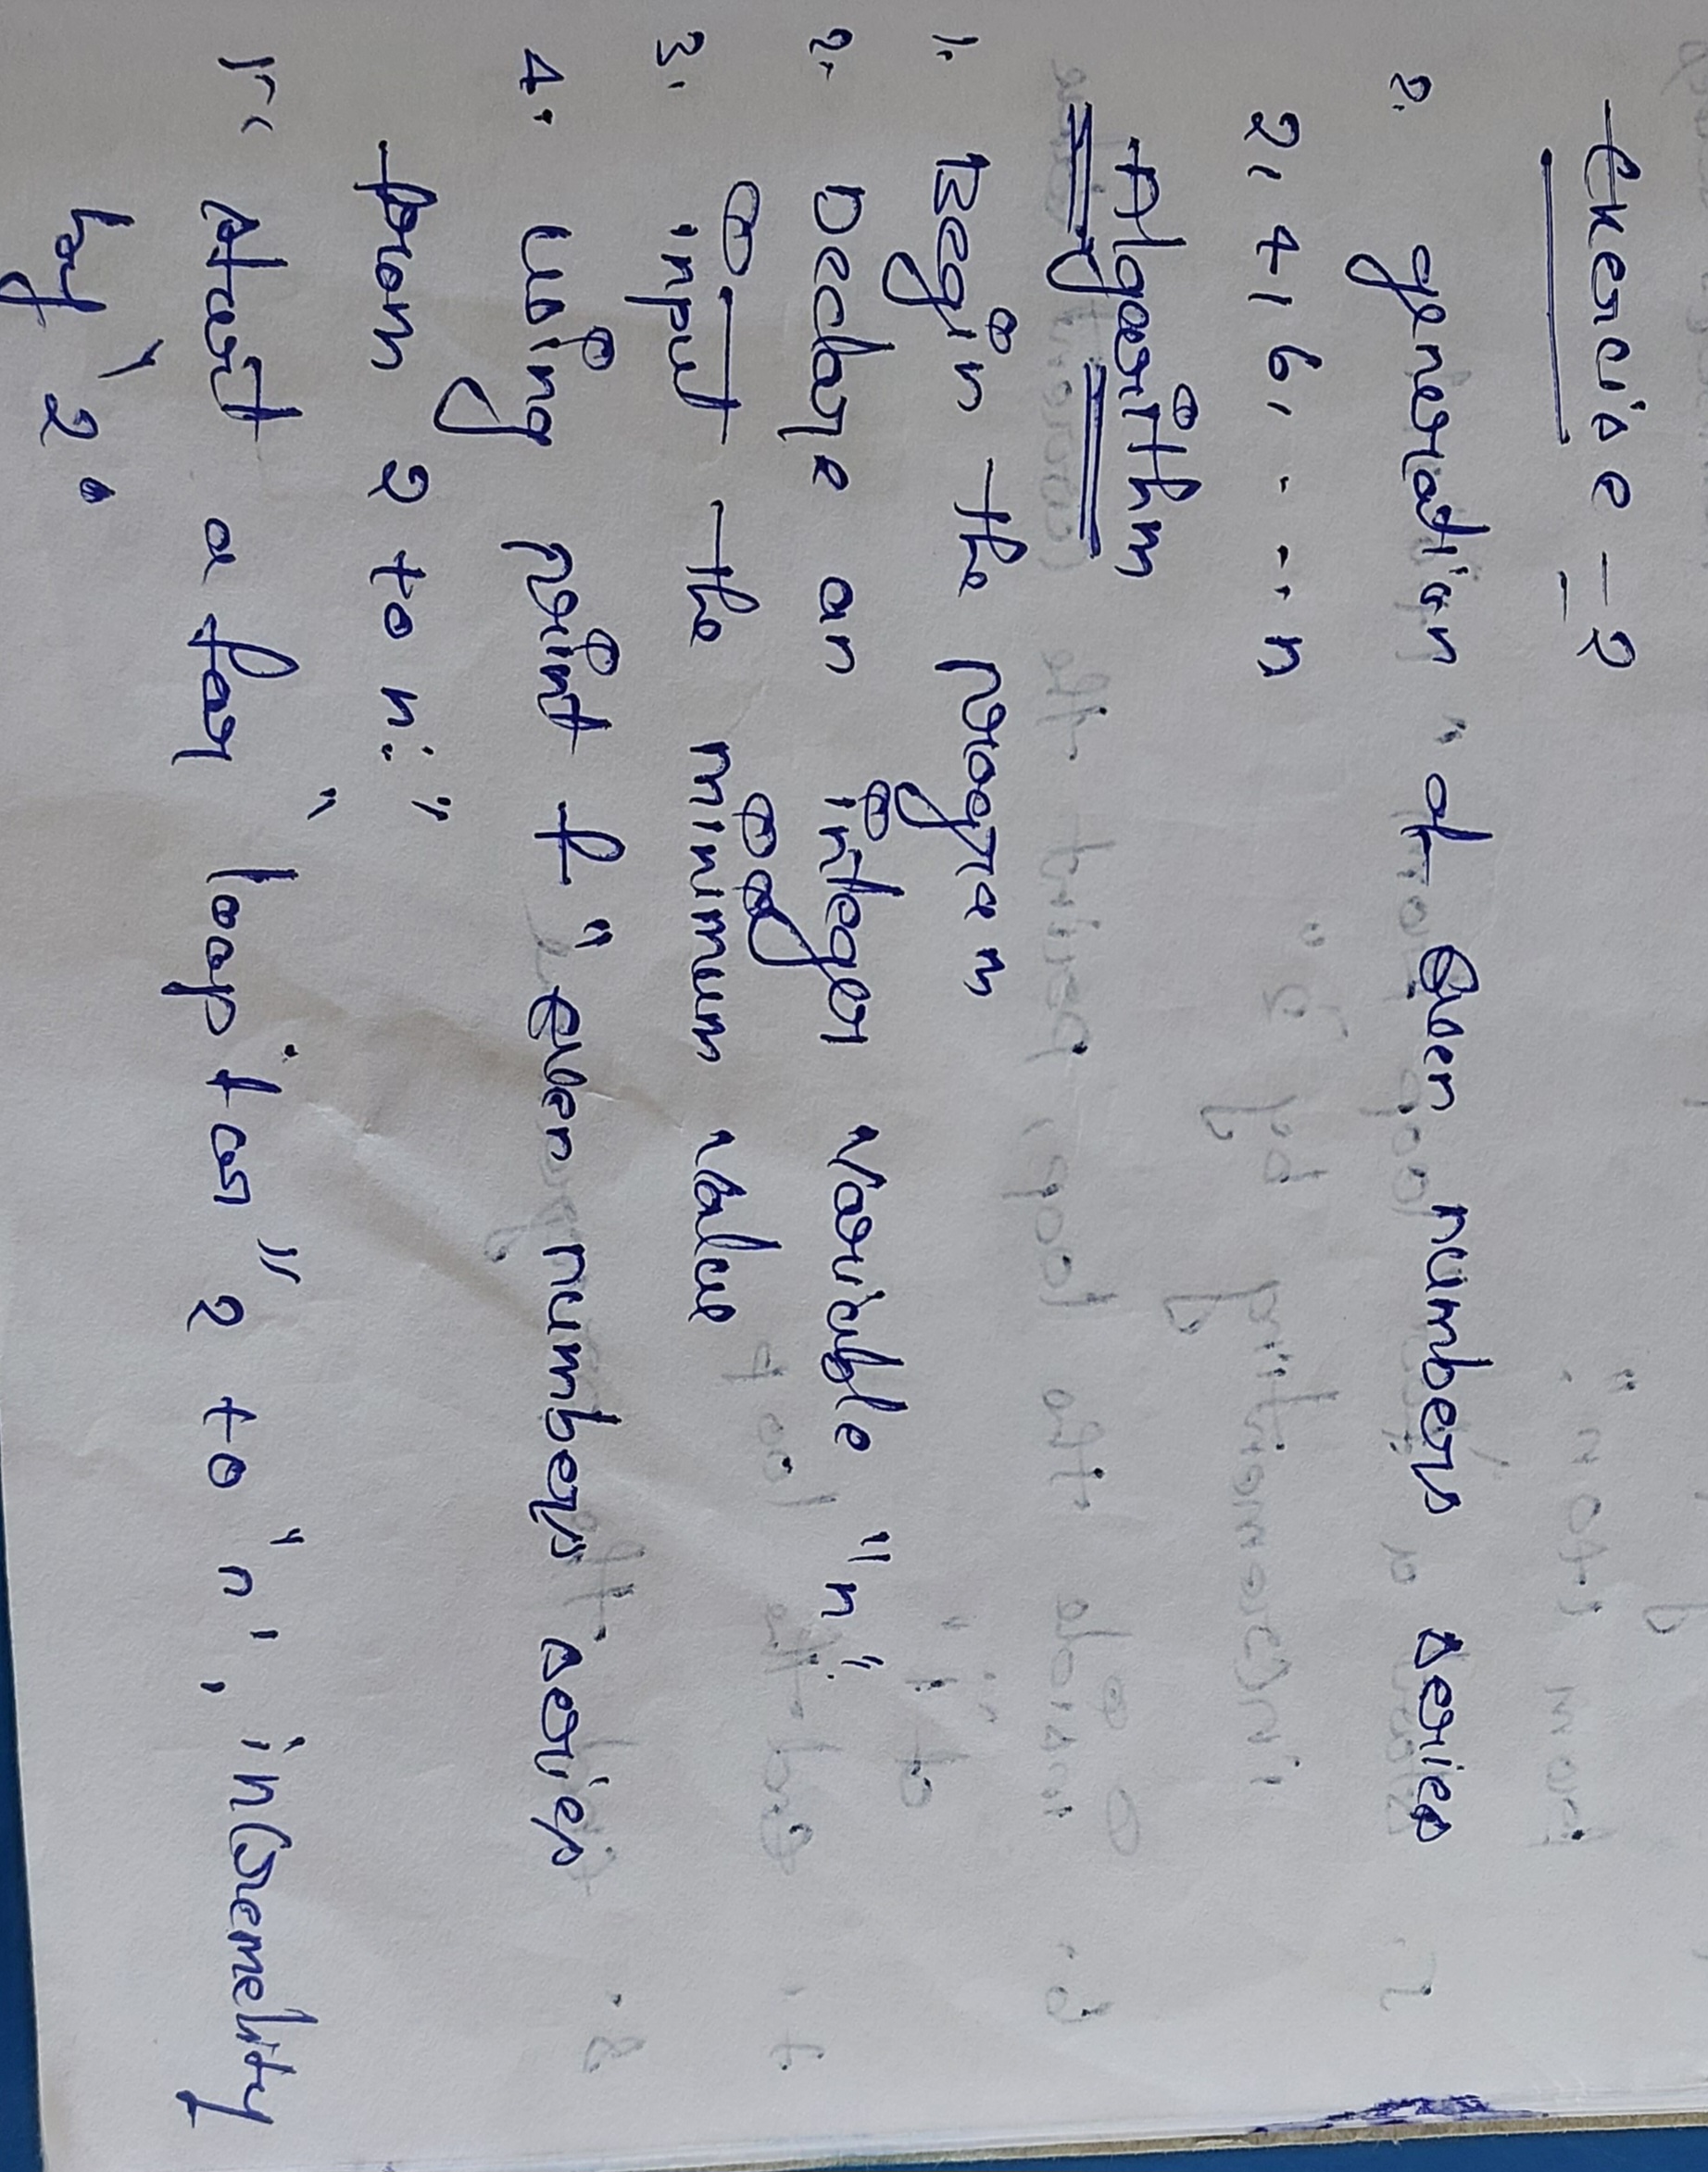 Exercise - 2
2. generation of Even numbers series
2, 4, 6, ....n
Algorithm
1. Begin the program
2. Declare an integer variable "n".
3. input the minimum value
4. using print f "even numbers series
from 2 to n:"
5. start a for loop for "2 to "n", incremelity
by "2.